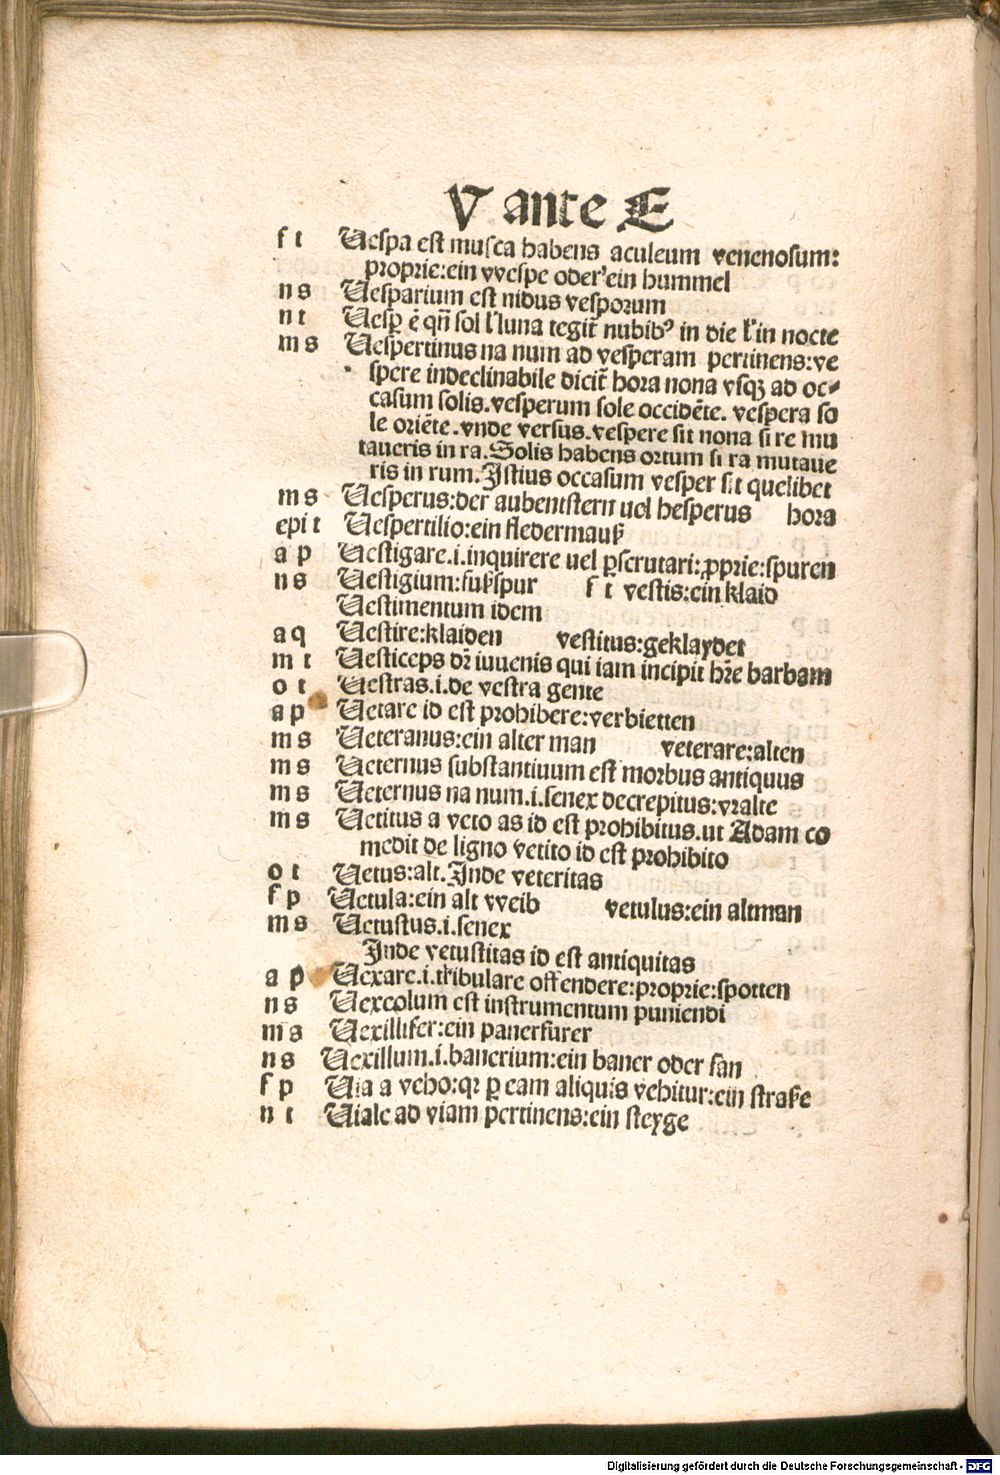 V ante E
f t Uespa est musca habens aculeum venenosum:
proprie:ein vvespe oder ein hummel
n s Uesparium est nidus vesporum
n t Uesꝑ ē qn̄ sol l' luna tegit̄ nubibꝰ in die l' in nocte
m s Uespertinus na num ad vesperam pertinens:ve
spere indeclinabile dicit̄ hora nona vsqꝫ ad oc⸗
casum solis.vesperum sole occidēte. vespera so
le oriēte.vnde versus.vespere sit nona si re mu
taueris in ra.Solis habens ortum si ra mutaue
ris in rum.Istius occasum vesper sit quelibet
m s Uesperus:der aubentstern uel hesperus hora
epi t Uespertilio:ein fledermauß
a p Uestigare.i.inquirere uel ꝑscrutari:ꝓprie:spuren
n s Uestigium:fußspur f t vestis:ein klaid
Uestimentum idem
a q Uestire:klaiden vestitus:geklaydet
m t Uesticeps dr̄ iuuenis qui iam incipit hr̄e barbam
o t Uestras.i.de vestra gente
a p Uetare id est prohibere:verbietten
m s Ueteranus:ein alter man veterare:alten
m s Ueternus substantiuum est morbus antiquus
m s Ueternus na num.i.senex decrepitus:vralte
m s Uetitus a veto as id est prohibitus.ut Adam co
medit de ligno vetito id est prohibito
o t Uetus:alt.Inde veteritas
f p Uetula:ein alt vveib vetulus:ein altman
m s Uetustus.i.senex
Inde vetustitas id est antiquitas
a p Uexare.i.tribulare offendere:proprie:spotten
n s Uexcolum est instrumentum puniendi
m s Uexillifer:ein panerfurer
n s Uexillum.i.banerium:ein baner oder fan
f p Uia a veho:qꝛ ꝑ eam aliquis vehitur:ein straße
n t Uiale ad viam pertinens:ein steyge
Digitalisierung gefördert durch die Deutsche Forschungsgemeinschaft - DFG